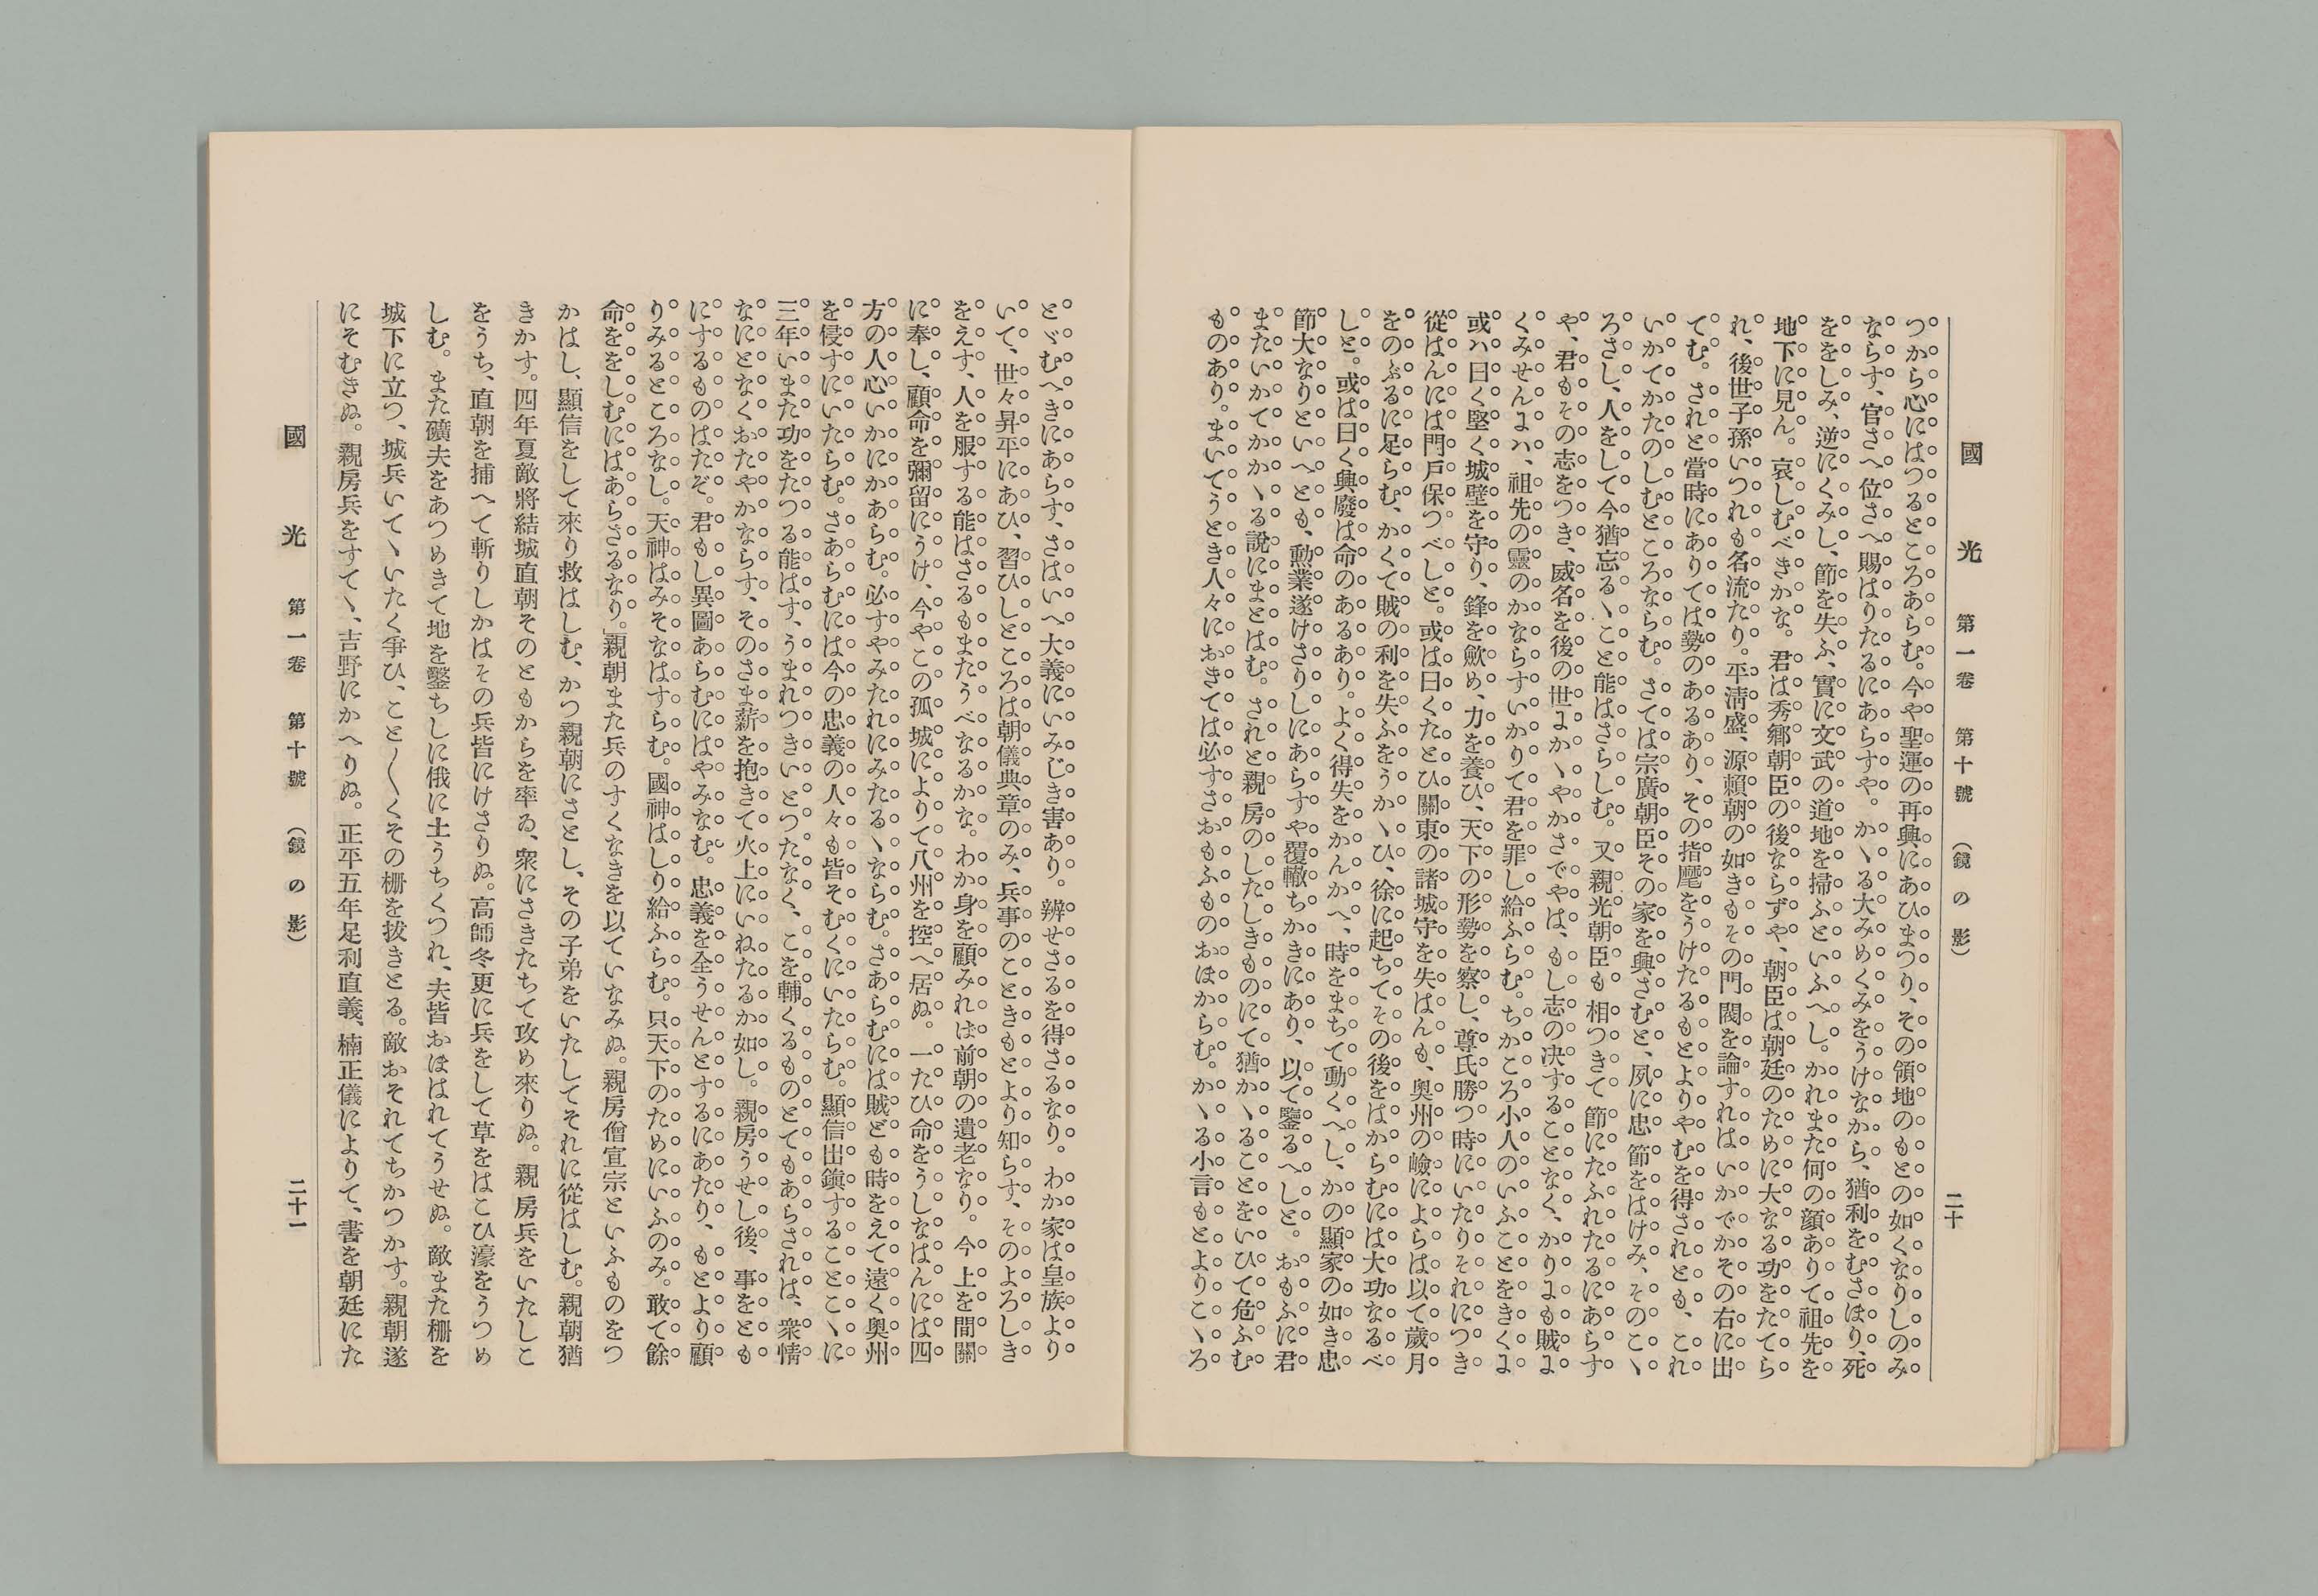 國光 第一卷 第十號 (鏡の影) 二十
つから心にはつるところあらむ。今や聖運の再興にあひまつり、その領地のもとの如くなりしのみ
ならす、官さへ位さへ賜はりたるにあらすや。かヽる大みめくみをうけなから、猶利をむさほり、死
ををしみ、逆にくみし、節を失ふ、實に文武の道地を掃ふといふへし。かれまた何の顔ありて祖先を
地下に見ん。哀しむべきかな。君は秀郷朝臣の後ならずや、朝臣は朝廷のために大なる功をたてら
れ、後世子孫いつれも名流たり。平淸盛、源頼朝の如きもその門閥を論すれはいかでかその右に出
てむ。されと當時にありては勢のあるあり、その指麾をうけたるもとよりやむを得されとも、これ
いかてかたのしむところならむ。さては宗廣朝臣その家を興さむと、夙に忠節をはけみ、そのこヽ
ろさし、人をして今猶忘るヽこと能はさらしむ。又親光朝臣も相つきて節にたふれたるにあらす
や、君もその志をつき、威名を後の世よかヽやかさでやは、もし志の決することなく、かりよも賊よ
くみせんよハ、祖先の靈のかならすいかりて君を罪し給ふらむ。ちかころ小人のいふことをきくよ
或ハ曰く堅く城壁を守り、鋒を歛め、力を養ひ、天下の形勢を察し、尊氏勝つ時にいたりそれにつき
從はんには門戸保つべしと。或は曰くたとひ關東の諸城守を失はんも、奥州の嶮によらは以て歳月
をのぶるに足らむ、かくて賊の利を失ふをうかヽひ、徐に起ちてその後をはからむには大功なるべ
しと。或は曰く興廢は命のあるあり。よく得失をかんかへ、時をまちて動くへし、かの顯家の如き忠
節大なりといへとも、勲業遂けさりしにあらすや覆轍ちかきにあり、以て鑒るへしと。おもふに君
またいかてかかヽる説にまとはむ。されと親房のしたしきものにて猶かヽることをいひて危ふむ
ものあり。まいてうとき人々におきては必すさおもふものおほからむ。かヽる小言もとよりこヽろ
とヾむへきにあらす、さはいへ大義にいみじき害あり。辨せさるを得さるなり。わか家は皇族より
いて、世々昇平にあひ、習ひしところは朝儀典章のみ、兵事のこときもとより知らす、そのよろしき
をえす、人を服する能はさるもまたうべなるかな。わか身を顧みれは前朝の遺老なり。今上を間關
に奉し、顧命を彌留にうけ、今やこの孤城によりて八州を控へ居ぬ。一たひ命をうしなはんには四
方の人心いかにかあらむ。必すやみたれにみたるヽならむ。さあらむには賊ども時をえて遠く奥州
を侵すにいたらむ。さあらむには今の忠義の人々も皆そむくにいたらむ。顯信出鎭することこヽに
三年いまた功をたつる能はす、うまれつきいとつたなく、こを輔くるものとてもあらされは、衆情
なにとなくおたやかならす、そのさま薪を抱きて火上にいねたるか如し。親房うせし後、事をとも
にするものはたぞ。君もし異圖あらむにはやみなむ。忠義を全うせんとするにあたり、もとより顧
りみるところなし。天神はみそなはすらむ。國神はしり給ふらむ。只天下のためにいふのみ。敢て餘
命ををしむにはあらさるなり。」親朝また兵のすくなきを以ていなみぬ。親房僧宣宗といふものをつ
かはし、顯信をして來り救はしむ、かつ親朝にさとし、その子弟をいたしてそれに從はしむ。親朝猶
きかす。四年夏敵將結城直朝そのともからを率ゐ、衆にさきたちて攻め來りぬ。親房兵をいたしこ
をうち、直朝を捕へて斬りしかはその兵皆にけさりぬ。高師冬更に兵をして草をはこひ濠をうつめ
しむ。また礦夫をあつめきて地を鑿ちしに俄に土うちくつれ、夫皆おほはれてうせぬ。敵また柵を
城下に立つ、城兵いてヽいたく爭ひ、こと〱くその柵を拔きとる。敵おそれてちかつかす。親朝遂
にそむきぬ。親房兵をすてヽ、吉野にかへりぬ。正平五年足利直義、楠正儀によりて、書を朝廷にた
國光 第一卷 第十號 (鏡の影) 二十一